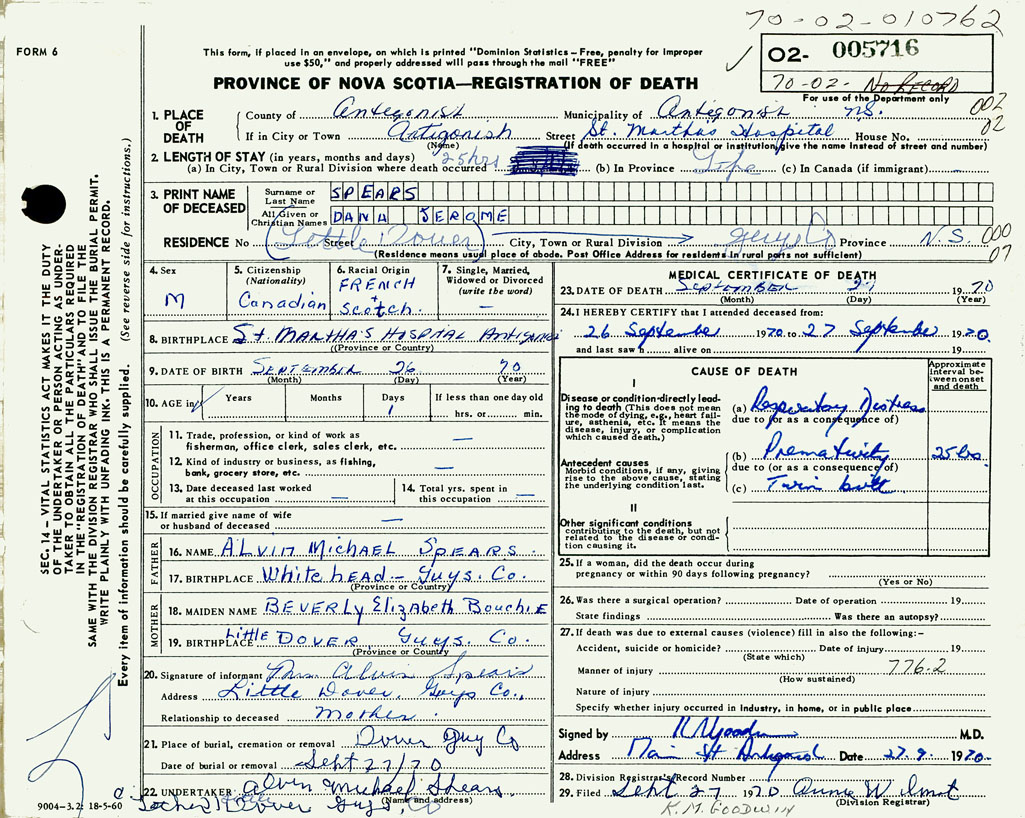 70-02-010762
FORM 6
This form, if placed in an envelope, on which is printed "Dominion Statistics – Free, penalty for improper
use $50," and properly addressed will pass through the mail "FREE"
02- 005716
70-02- No RECORD
For use of the Department only
PROVINCE OF NOVA SCOTIA—REGISTRATION OF DEATH
002
02
1. PLACE OF DEATH
County of Antigonish Municipality of Antigonish NS.
If in City or Town Antigonish Street St. Marthas Hospital House No.
(Name) (If death occurred in a hospital or institution, give the name instead of street and number)
2. LENGTH OF STAY (in years, months and days)
(a) In City, Town or Rural Division where death occurred 25 hrs (b) In Province Life (c) In Canada (if immigrant) —
3. PRINT NAME OF DECEASED
Surname or Last Name SPEARS
All Given or Christian Names DANA JEROME
RESIDENCE No Street (Little Dover) City, Town or Rural Division Guys Co Province N.S.
000
07
(Residence means usual place of abode. Post Office Address for residents in rural parts not sufficient)
4. Sex M
5. Citizenship (Nationality) Canadian
6. Racial Origin FRENCH + Scotch
7. Single, Married, Widowed or Divorced (write the word) —
8. BIRTHPLACE St. MARTHA'S HOSPITAL Antigonish
(Province or Country)
9. DATE OF BIRTH SEPTEMBER 26 70
(Month) (Day) (Year)
10. AGE in Years Months Days 1 If less than one day old hrs. or min.
OCCUPATION
11. Trade, profession, or kind of work as fisherman, office clerk, sales clerk, etc. —
12. Kind of industry or business, as fishing, bank, grocery store, etc. —
13. Date deceased last worked at this occupation —
14. Total yrs. spent in this occupation —
15. If married give name of wife or husband of deceased —
FATHER
16. NAME ALVIN MICHAEL SPEARS
17. BIRTHPLACE Whitehead – Guys. Co.
(Province or Country)
MOTHER
18. MAIDEN NAME BEVERLY Elizabeth BouchIE
19. BIRTHPLACE Little DOVER Guys. Co.
(Province or Country)
20. Signature of informant Mrs Alvin Spears
Address Little Dover, Guys Co.,
Relationship to deceased Mother.
21. Place of burial, cremation or removal Dover Guy Co
Date of burial or removal Sept 27/70
22. UNDERTAKER Alvin Michael Spears
(Name and address)
Dover Guys, Co
9004-3.2: 18-5-60
MEDICAL CERTIFICATE OF DEATH
23. DATE OF DEATH SEPTEMBER 27 1970
(Month) (Day) (Year)
24. I HEREBY CERTIFY that I attended deceased from:
26 September 1970 to 27 September 1970.
and last saw h alive on 19
CAUSE OF DEATH
Approximate interval between onset and death
I
Disease or condition directly leading to death (This does not mean the mode of dying, e.g., heart failure, asthenia, etc. It means the disease, injury, or complication which caused death.)
(a) Respiratory Distress
due to (or as a consequence of)
Antecedent causes
Morbid conditions, if any, giving rise to the above cause, stating the underlying condition last.
(b) Prematurity 25 hrs.
due to (or as a consequence of)
(c) Twin birth
II
Other significant conditions
contributing to the death, but not related to the disease or condition causing it.
25. If a woman, did the death occur during pregnancy or within 90 days following pregnancy?
(Yes or No)
26. Was there a surgical operation? Date of operation 19
State findings Was there an autopsy?
27. If death was due to external causes (violence) fill in also the following:-
Accident, suicide or homicide? Date of injury 19
(State which)
Manner of injury 776.2
(How sustained)
Nature of injury
Specify whether injury occurred in industry, in home, or in public place
Signed by K M Goodwin M.D.
Address Main St Antigonish Date 27.9. 1970.
28. Division Registrar's Record Number
29. Filed Sept 27 1970
(Division Registrar)
K.M. GOODWIN
SEC. 14 – VITAL STATISTICS ACT MAKES IT THE DUTY
OF THE UNDERTAKER OR PERSON ACTING AS UNDER-
TAKER TO OBTAIN ALL THE PARTICULARS REQUIRED
IN THE "REGISTRATION OF DEATH" AND TO FILE THE
SAME WITH THE DIVISION REGISTRAR WHO SHALL ISSUE THE BURIAL PERMIT.
WRITE PLAINLY WITH UNFADING INK. THIS IS A PERMANENT RECORD.
Every item of information should be carefully supplied. (See reverse side for instructions.)